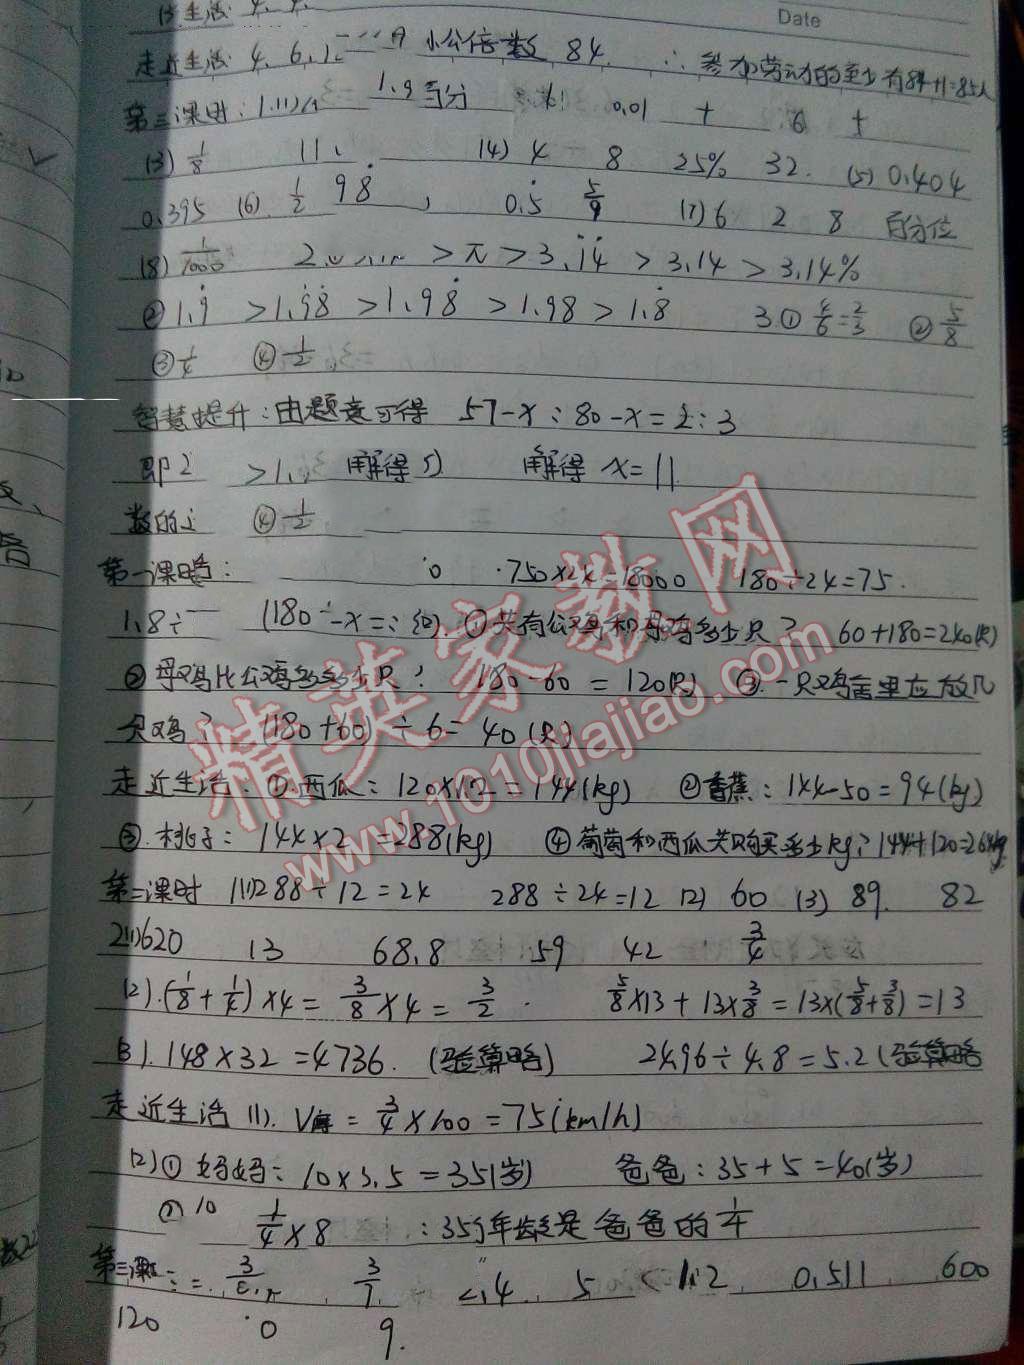 Date
走近生活: 4. 6. 12 小公倍数 84. ∴参加劳动的至少有84+1=85人
第三课时: 1.9 百分 0.01 + 6 +
(3) 1/8 11 (4) 4 8 25% 32. (5) 0.404
0.395 (6) 1/2 98̇ 0.5̇ 5/9 (7) 6 2 8 百分位
(8) 1/1000 2. > π > 3.1̇4̇ > 3.14 > 3.14%
② 1.9̇ > 1.9̇8̇ > 1.98̇ > 1.98 > 1.8̇ 3.① 4/6=2/3 ② 5/8
③ 1/4 ④ 1/2
智慧提升: 由题意可得 57-x : 80-x = 2 : 3
即2 > 1. 解得 解得 x=11
数的 ④ 1/2
第一课时: 0 750×24=18000 180÷24=75.
1.8÷ (180÷-x= ① 共有公鸡和母鸡多少只? 60+180=240(只)
② 母鸡比公鸡多多少只? 180-60=120(只) ③ 一只鸡舍里应放几
只鸡? (180+60)÷6=40(只)
走近生活: ① 西瓜: 120×1.2=144(kg) ② 香蕉: 144-50=94(kg)
③ 桃子: 144×2=288(kg) ④ 葡萄和西瓜共购买多少kg? 144+120=264kg
第二课时 (1) 288÷12=24 288÷24=12 (2) 60 (3) 89. 82
2.(1) 620 13 68.8 59 42 3/4
(2).(1/8+1/4)×4=3/8×4=3/2. 5/8×13+13×3/8=13×(5/8+3/8)=13
(3).148×32=4736. (验算略) 24.96÷4.8=5.2 (验算略
走近生活 (1). V =3/4×100=75(km/h)
(2) ① 妈妈: 10×3.5=35(岁) 爸爸: 35+5=40(岁)
② 10 1/4×8 : 年龄是爸爸的1/4
第三课 3 3/7 <.4 5 < 1.2 0.511 600
120 0 9.
精英家教网
www.1010jiajiao.com